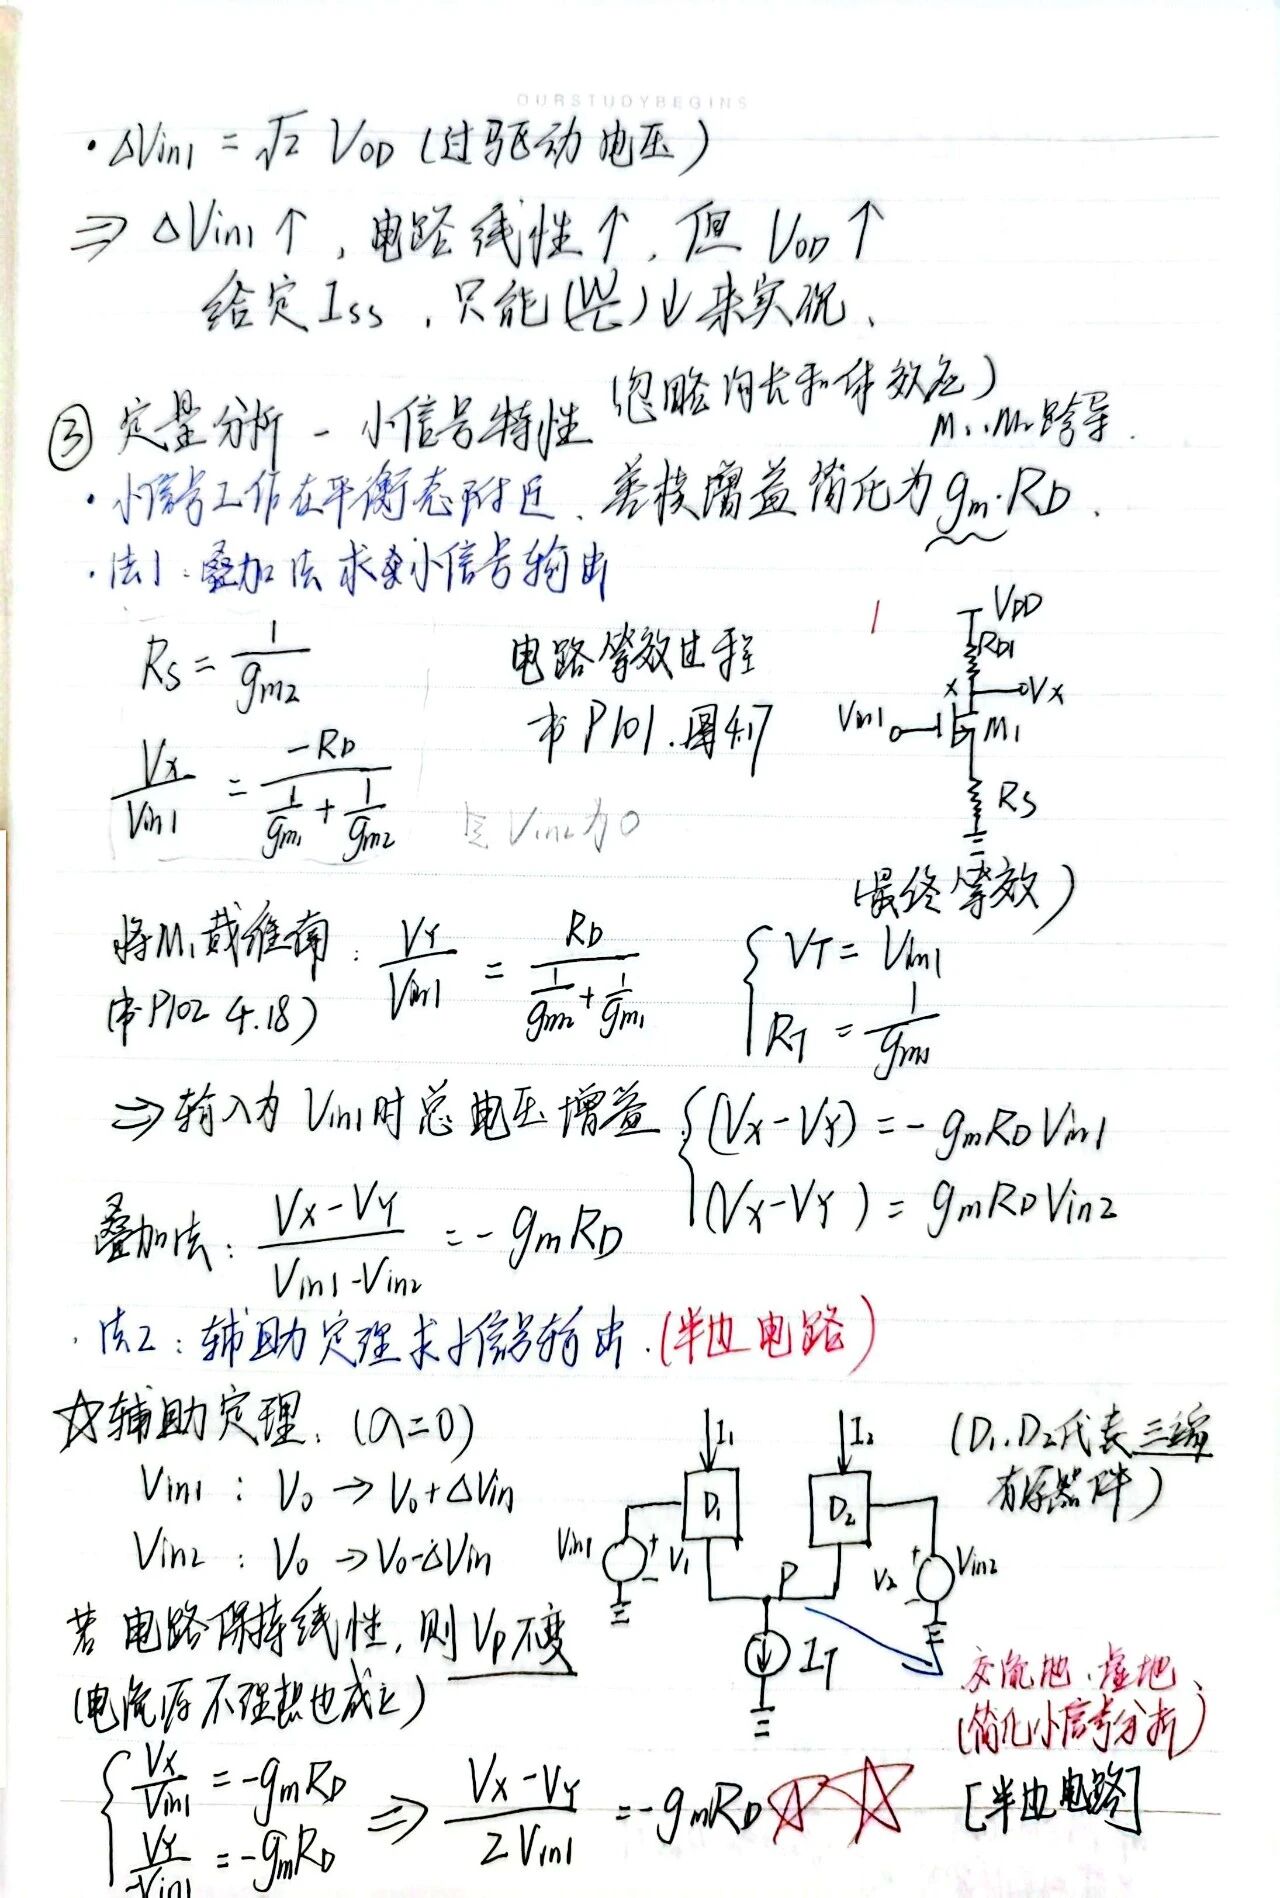 OURSTUDYBEGINS
· ΔVin1 = √2 VOD (过驱动电压)
⇒ ΔVin1 ↑, 电路线性↑, 但 VOD ↑
给定 ISS, 只能(W/L)↓来实现、
③ 定量分析 - 小信号特性 (忽略沟长和体效应)
M1、M2跨导.
· 小信号工作在平衡态附近、差模增益简化为 gm·RD、
· 法1: 叠加法求小信号输出
RS = 1/gm2
电路等效过程
书 P101. 图4.17
VX/Vin1 = -RD/(1/gm1 + 1/gm2)
Vin2为0
VDD
RD1
X
VX
Vin1
M1
RS
(最终等效)
将M1戴维南: VY/Vin1 = RD/(1/gm2 + 1/gm1)
(书P102 4.18)
{ VT = Vin1
RT = 1/gm1
⇒ 输入为 Vin1时总电压增益 { (VX-VY) = -gmRDVin1
(VX-VY) = gmRDVin2
叠加法: (VX-VY)/(Vin1-Vin2) = -gmRD
· 法2: 辅助定理求小信号输出. (半边电路)
☆辅助定理. (λ=0)
Vin1 : V0 → V0+ΔVin
Vin2 : V0 → V0-ΔVin
若电路保持线性, 则 VP不变
(电流源不理想也成立)
I1
I2
D1
D2
Vin1
V1
P
V2
Vin2
IT
(D1.D2代表三端
有源器件)
交流地、虚地、
(简化小信号分析)
[半边电路]
{ VX/Vin1 = -gmRD
VY/-Vin1 = -gmRD ⇒ (VX-VY)/2Vin1 = -gmRD ☆☆